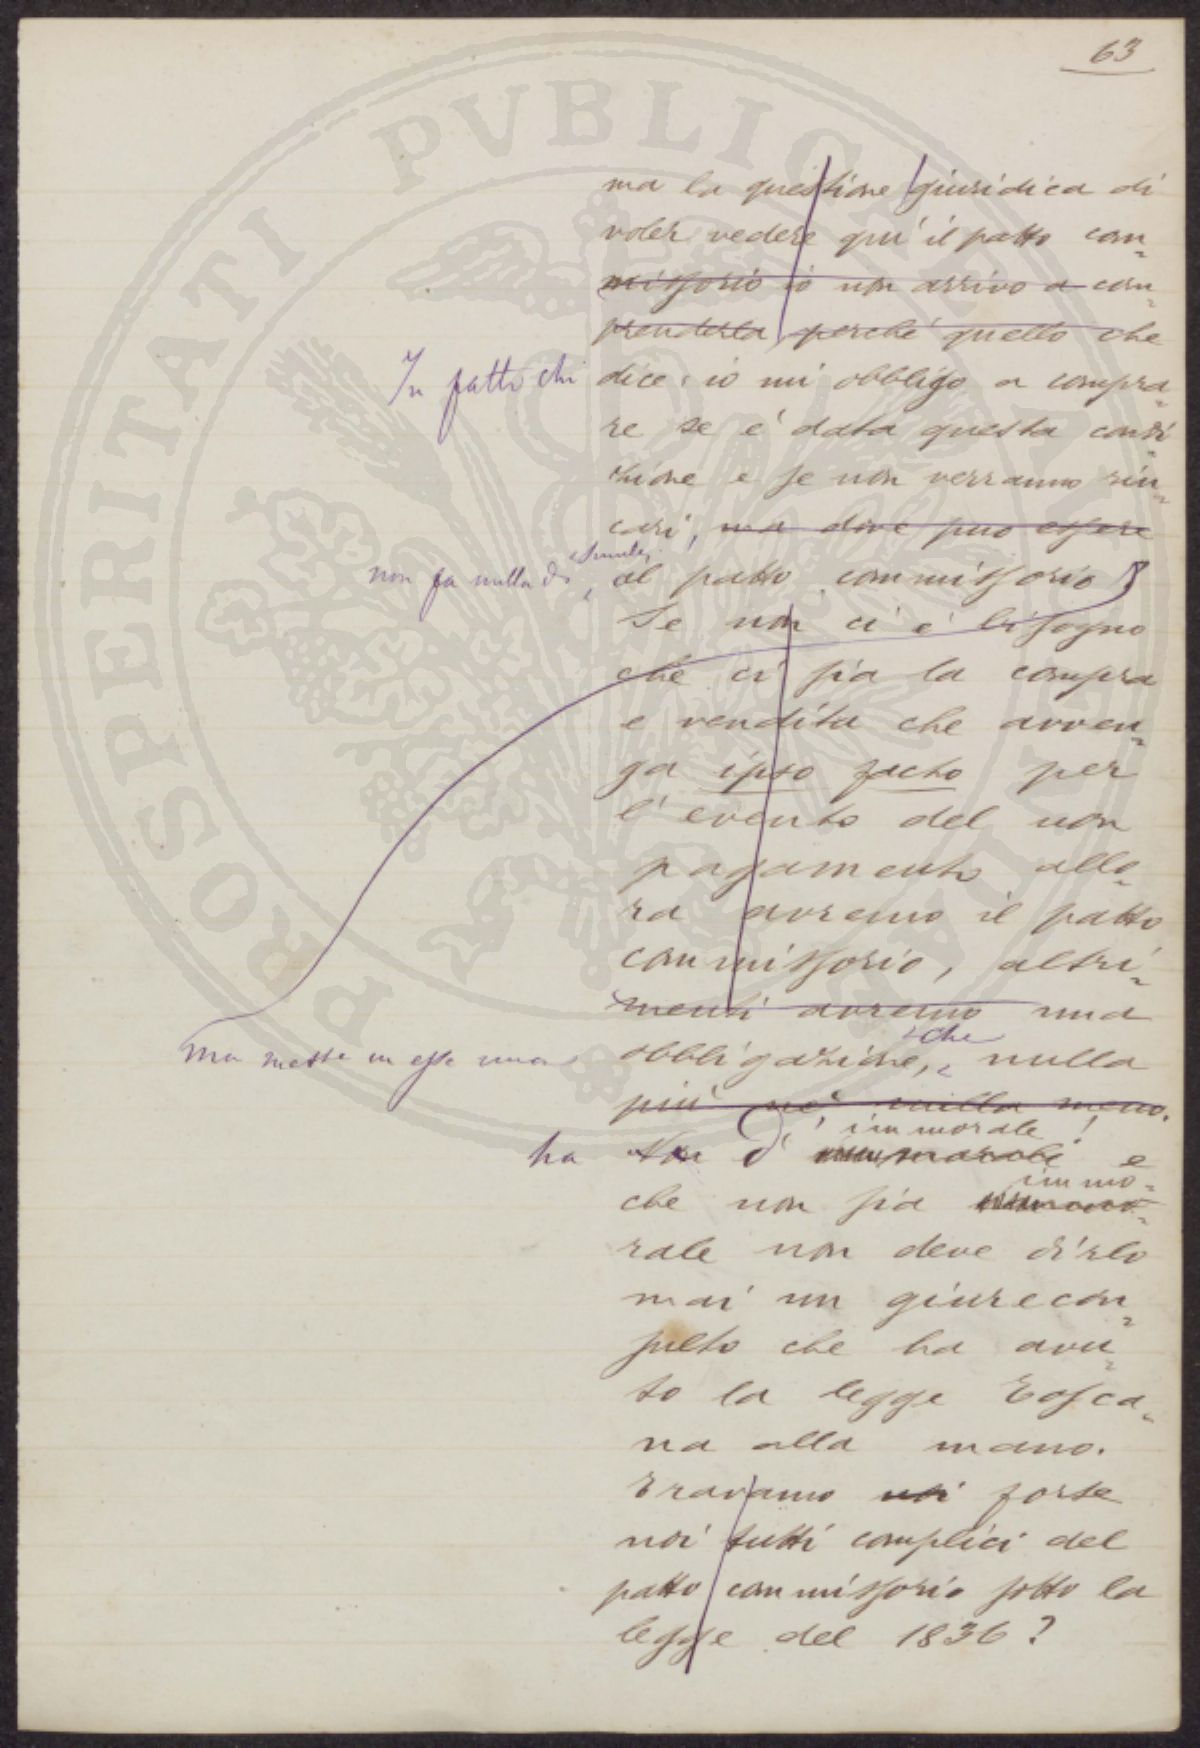 63
ma la questione giuridica di
voler vedere qui il patto com=
missorio io non arrivo a com=
prenderla, perché quello che
In fatti chi dice: io mi obbligo a compra=
re se è data questa condi=
zione e se non verranno rin=
cari, ma dove può essere
non fa nulla di simile, al patto commissorio?
Se non ci è bisogno
che ci sia la compra
e vendita che avven=
ga ipso facto per
l'evento del non
pagamento allo=
ra avremo il patto
commissorio, altri=
menti avremo una
ma mette in esse una obbligazione, che nulla
più nè nulla meno.
ha Non di immorale! e
che non sia immo=
rale non deve dirlo
mai un giurecon=
sulto che ha avu=
to la legge Tosca=
na alla mano.
Eravamo noi forse
noi tutti complici del
patto commissorio sotto la
legge del 1836?
PROSPERITATI PVBLICAE